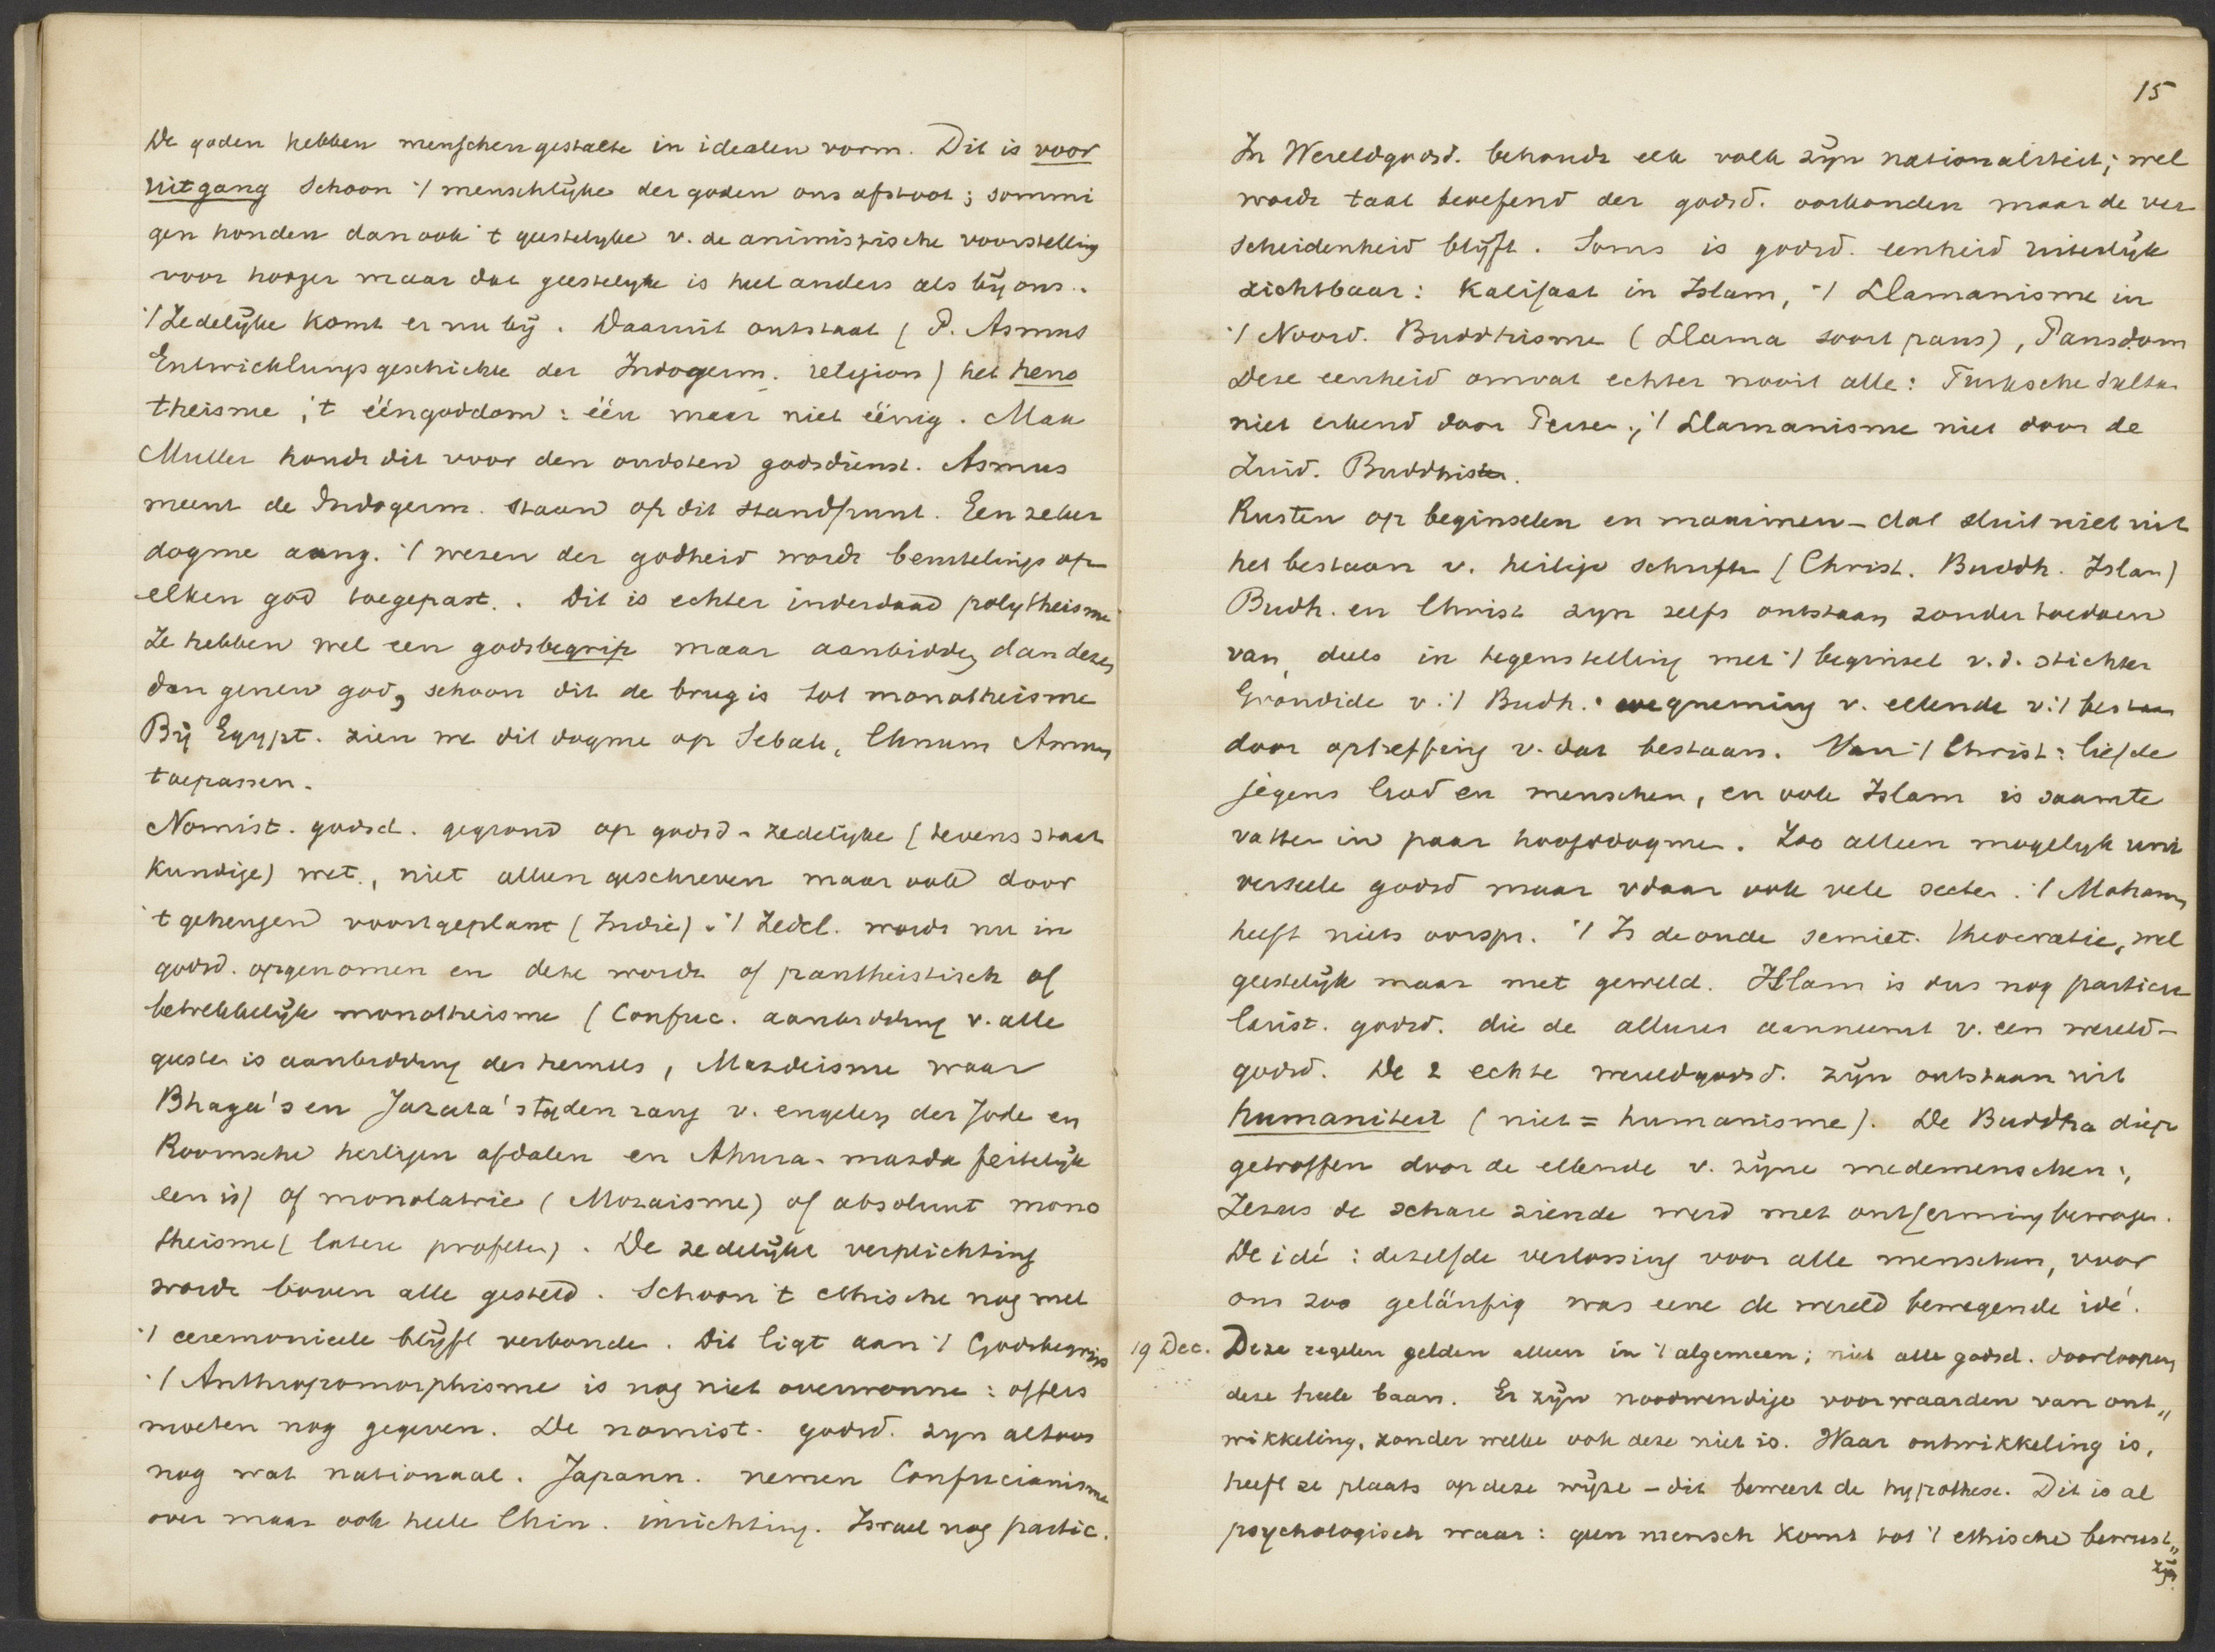 De goden hebben menschengestalte in idealen vorm. Dit is voor
uitgang Schoon 't menschlijke der goden ons afstoot; sommi
gen houden dan ook 't geestelyke v. de animistische voorstelling
voor hooger maar dat geestelyke is heel anders als bij ons.
't Zedelijke komt er nu bij. Daaruit ontstaat (P. Asmus
Entwicklungsgeschichte der Indogerm. religion) het heno
theisme, 't ééngoddom: één maar niet éénig. Max
Muller houdt dit voor den oudsten godsdienst. Asmus
meent de Indogerm. staan op dit standpunt. Een zeker
dogme aang. 't wezen der godheid wordt beurtelings op
elken god toegepast. Dit is echter inderdaad polytheisme
Ze hebben wel een godsbegrip maar aanbidden dan dezen
dan genen god, schoon dit de brug is tot monotheisme
Bij Egypt. zien we dit dogme op Sebak, Chnum Ammon
toepassen.
Nomist. godsd. gegrond op godsd-zedelijke (tevens staat
kundige) wet, niet alleen geschreven maar ook door
't geheugen voortgeplant (Indië). 't Zedel. wordt nu in
godsd. opgenomen en deze wordt of pantheistisch of
betrekkelijk monotheisme (Confuc. aanbidding v. alle
geesten is aanbidding des hemels, Mazdeisme waar
Bhaga's en Jazata's tot den rang v. engelen der Jode en
Roomsche heiligen afdalen en Ahura-mazda feitelijk
een is) of monolatrie (Mozaisme) of absoluut mono
theisme (latere profeten). De zedelijke verplichting
wordt boven alle gesteld. Schoon 't ethische nog met
't ceremonieele blijft verbonden. Dit ligt aan 't Godsbegrip
't Anthropomorphisme is nog niet overwonne: offers
moeten nog gegeven. De nomist. godsd. zyn altoos
nog wat nationaal. Japann. nemen Confucianisme
over maar ook heele Chin. inrichting. Israel nog partic.
15
In Wereldgodsd. behoudt elk volk zijn nationaliteit; wel
wordt taal beoefend der godsd. oorkonden maar de ver
scheidenheid blijft. Soms is godsd. eenheid uiterlijk
zichtbaar: Kalifaat in Islam, 't Llamanisme in
't Noord. Buddhisme (Llama soort paus), Pausdom
Deze eenheid omvat echter nooit alle: Turksche sultan
niet erkend door Perzen; 't Llamanisme niet door de
Zuid. Buddhisten.
Rusten op beginselen en maximen - dat sluit niet uit
het bestaan v. heilige schriften (Christ. Buddh. Islam)
Budh. en Christ zyn zelfs ontstaan zonder toedoen
van, deels in tegenstelling met 't beginsel v. d. stichter
Grondide v. 't Budh.: wegneming v. ellende v. 't bestaan
door opheffing v. dat bestaan. Van 't Christ: liefde
jegens God en menschen, en ook Islam is saamte
vatten in paar hoofddogmen. Zoo alleen mogelyk uni
verseele godsd maar vdaar ook vele secten. 't Moham
heeft niets oorspr. 't Is de oude semiet. theocratie, wel
geestelijk maar met geweld. Islam is dus nog particu
larist. godsd. die de allures aanneemt v. een wereld-
godsd. De 2 echte wereldgodsd. zijn ontstaan uit
humaniteit (niet = humanisme). De Buddha diep
getroffen door de ellende v. zijne medemenschen;
Jezus de schare ziende werd met ontferming bewogen.
De idé: dezelfde verlossing voor alle menschen, voor
ons zoo geläufig was eene de wereld bewegende idé.
19 Dec. Deze regelen gelden alleen in 't algemeen; niet alle godsd. doorloopen
deze heele baan. Er zijn noodwendige voorwaarden van ont„
wikkeling, zonder welke ook deze niet is. Waar ontwikkeling is,
heeft ze plaats op deze wijze - dit beweert de hypothese. Dit is al
psychologisch waar: geen mensch komt tot 't ethische bewust„
zijn